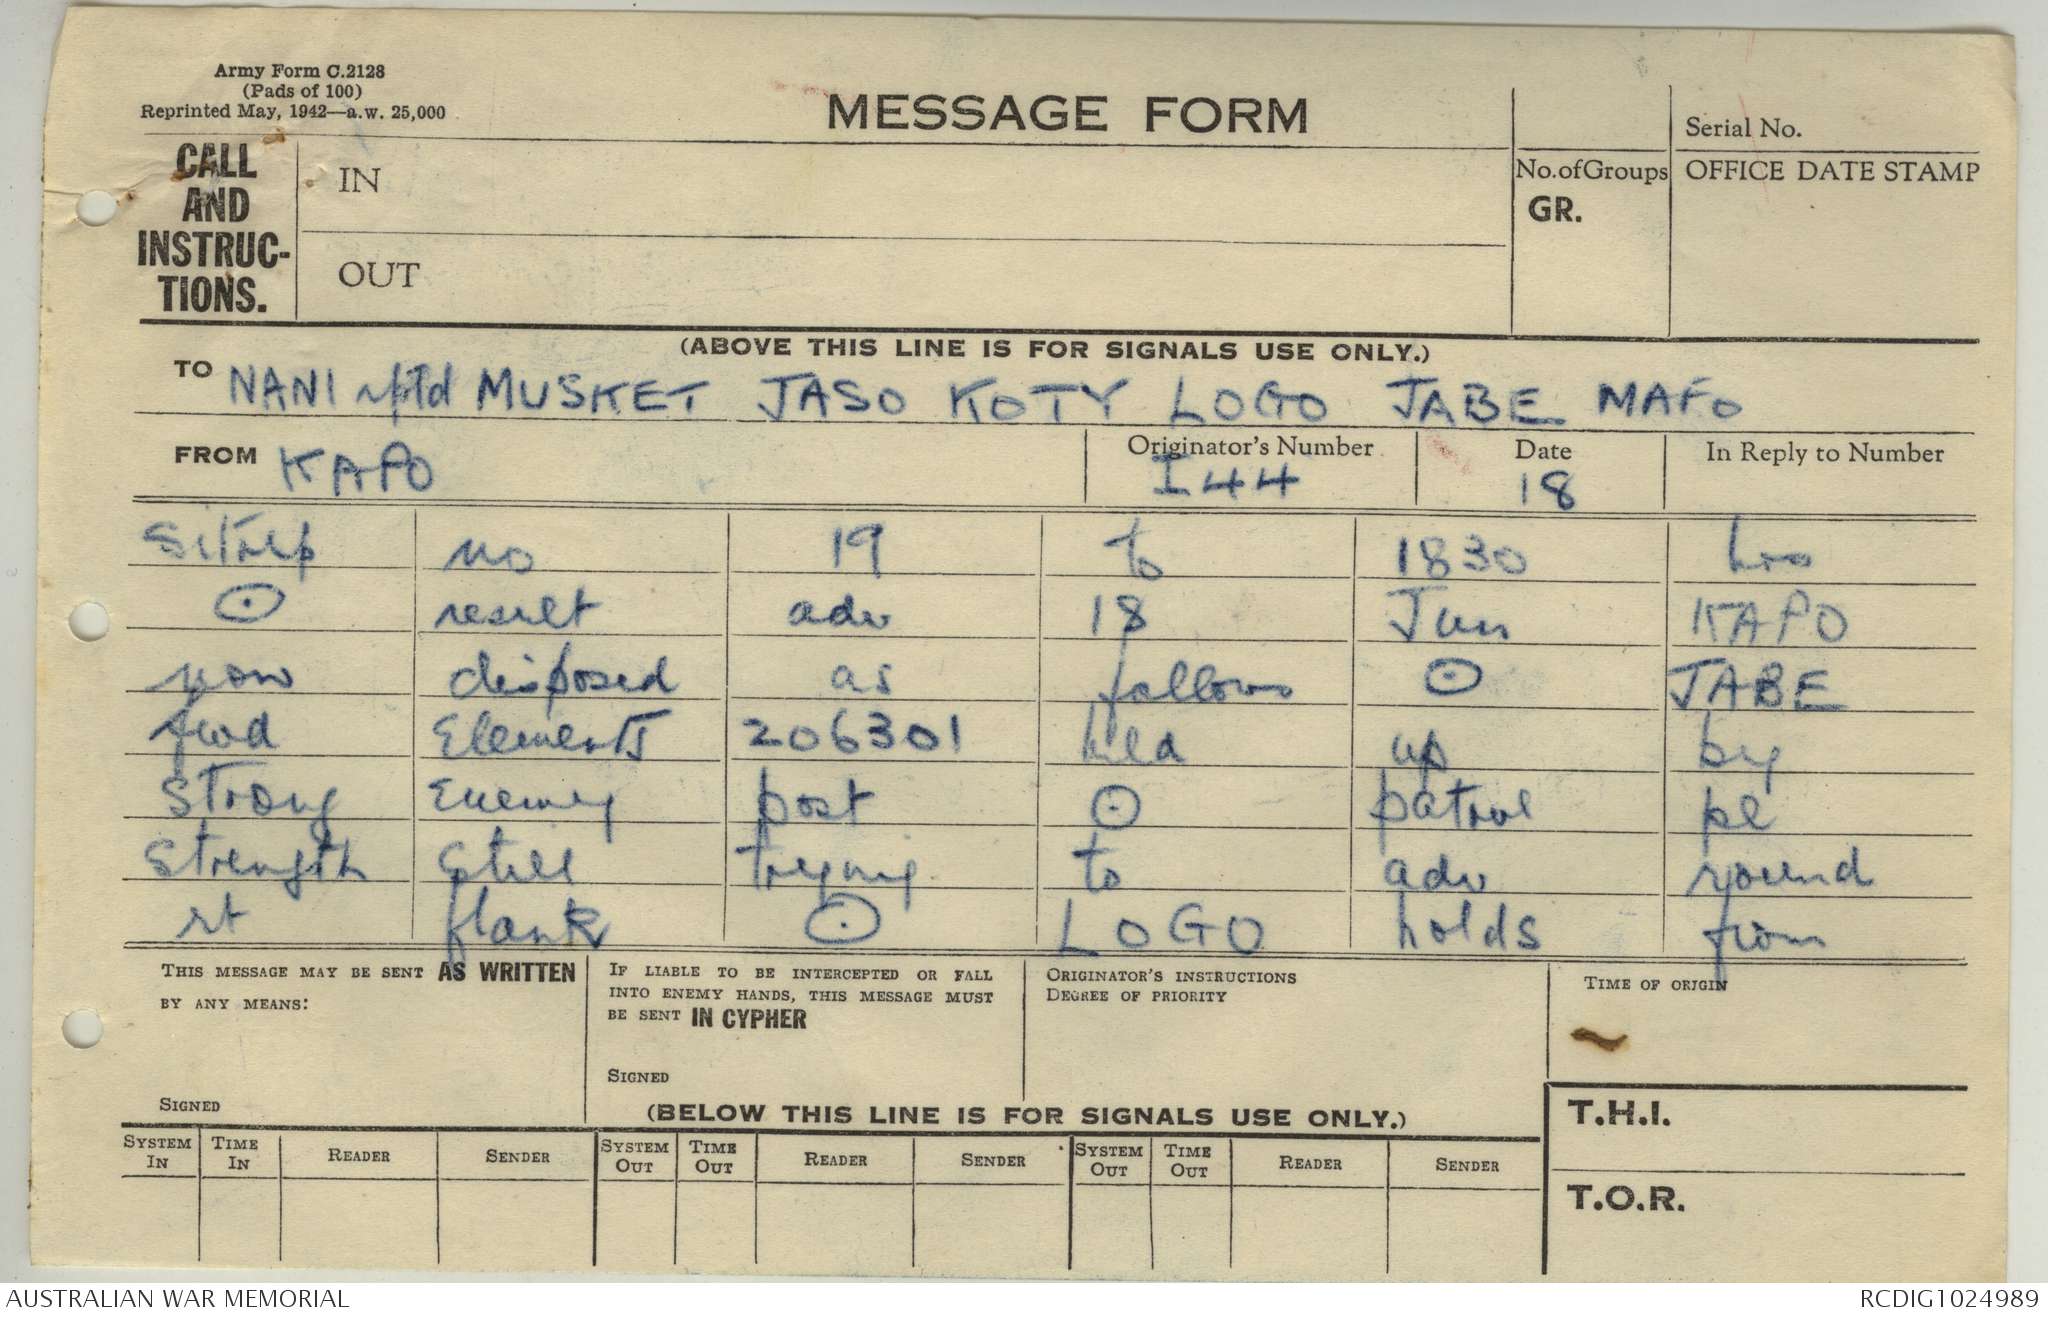 Army Form C.2128
(Pads of 100)
Reprinted May, 1942—a.w. 25,000
MESSAGE FORM
Serial No.
CALL AND INSTRUC-TIONS.
IN
OUT
No. of Groups
GR.
OFFICE DATE STAMP
(ABOVE THIS LINE IS FOR SIGNALS USE ONLY.)
TO NANI rptd MUSKET JASO KOTY LOGO JABE MAFO
FROM KAPO
Originator's Number I 44
Date 18
In Reply to Number
Sitrep no 19 to 1830 hrs
⊙ result adv 18 Jun KAPO
now disposed as follows ⊙ JABE
fwd Elements 206301 held up by
Strong Enemy post ⊙ patrol pl
Strength still trying to adv round
rt flank ⊙ LOGO holds from
THIS MESSAGE MAY BE SENT AS WRITTEN BY ANY MEANS:
SIGNED
IF LIABLE TO BE INTERCEPTED OR FALL INTO ENEMY HANDS, THIS MESSAGE MUST BE SENT IN CYPHER
SIGNED
ORIGINATOR'S INSTRUCTIONS
DEGREE OF PRIORITY
TIME OF ORIGIN
(BELOW THIS LINE IS FOR SIGNALS USE ONLY.)
T.H.I.
T.O.R.
SYSTEM IN TIME IN READER SENDER SYSTEM OUT TIME OUT READER SENDER SYSTEM OUT TIME OUT READER SENDER
AUSTRALIAN WAR MEMORIAL
RCDIG1024989